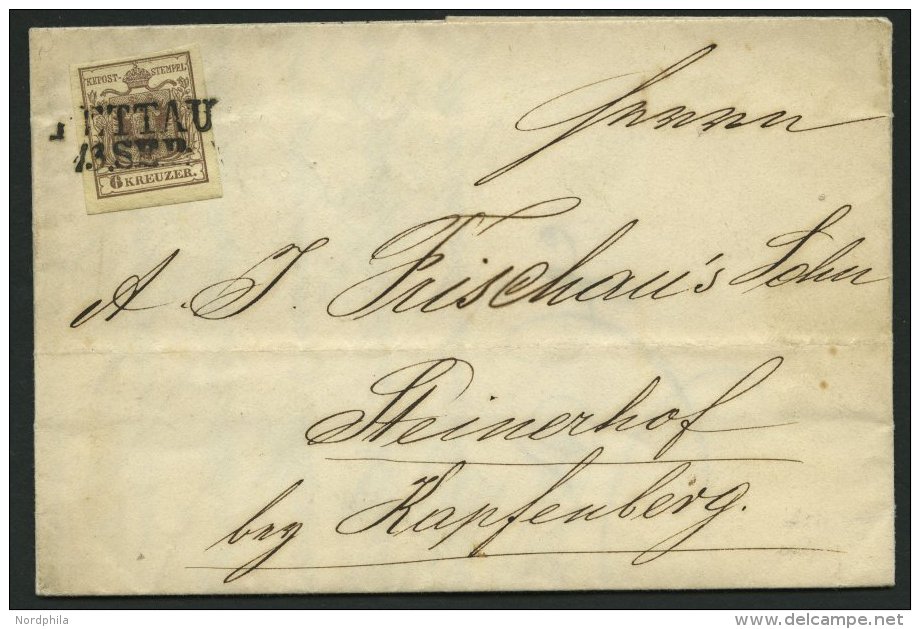 KKPOST-STEMPEL
PETTAU
13.SEP.
6 KREUZER.
Herrn
A. J. Frischau's Sohn
Steinerhof
bey Kapfenberg.
Nordphila
www.delcampe.net